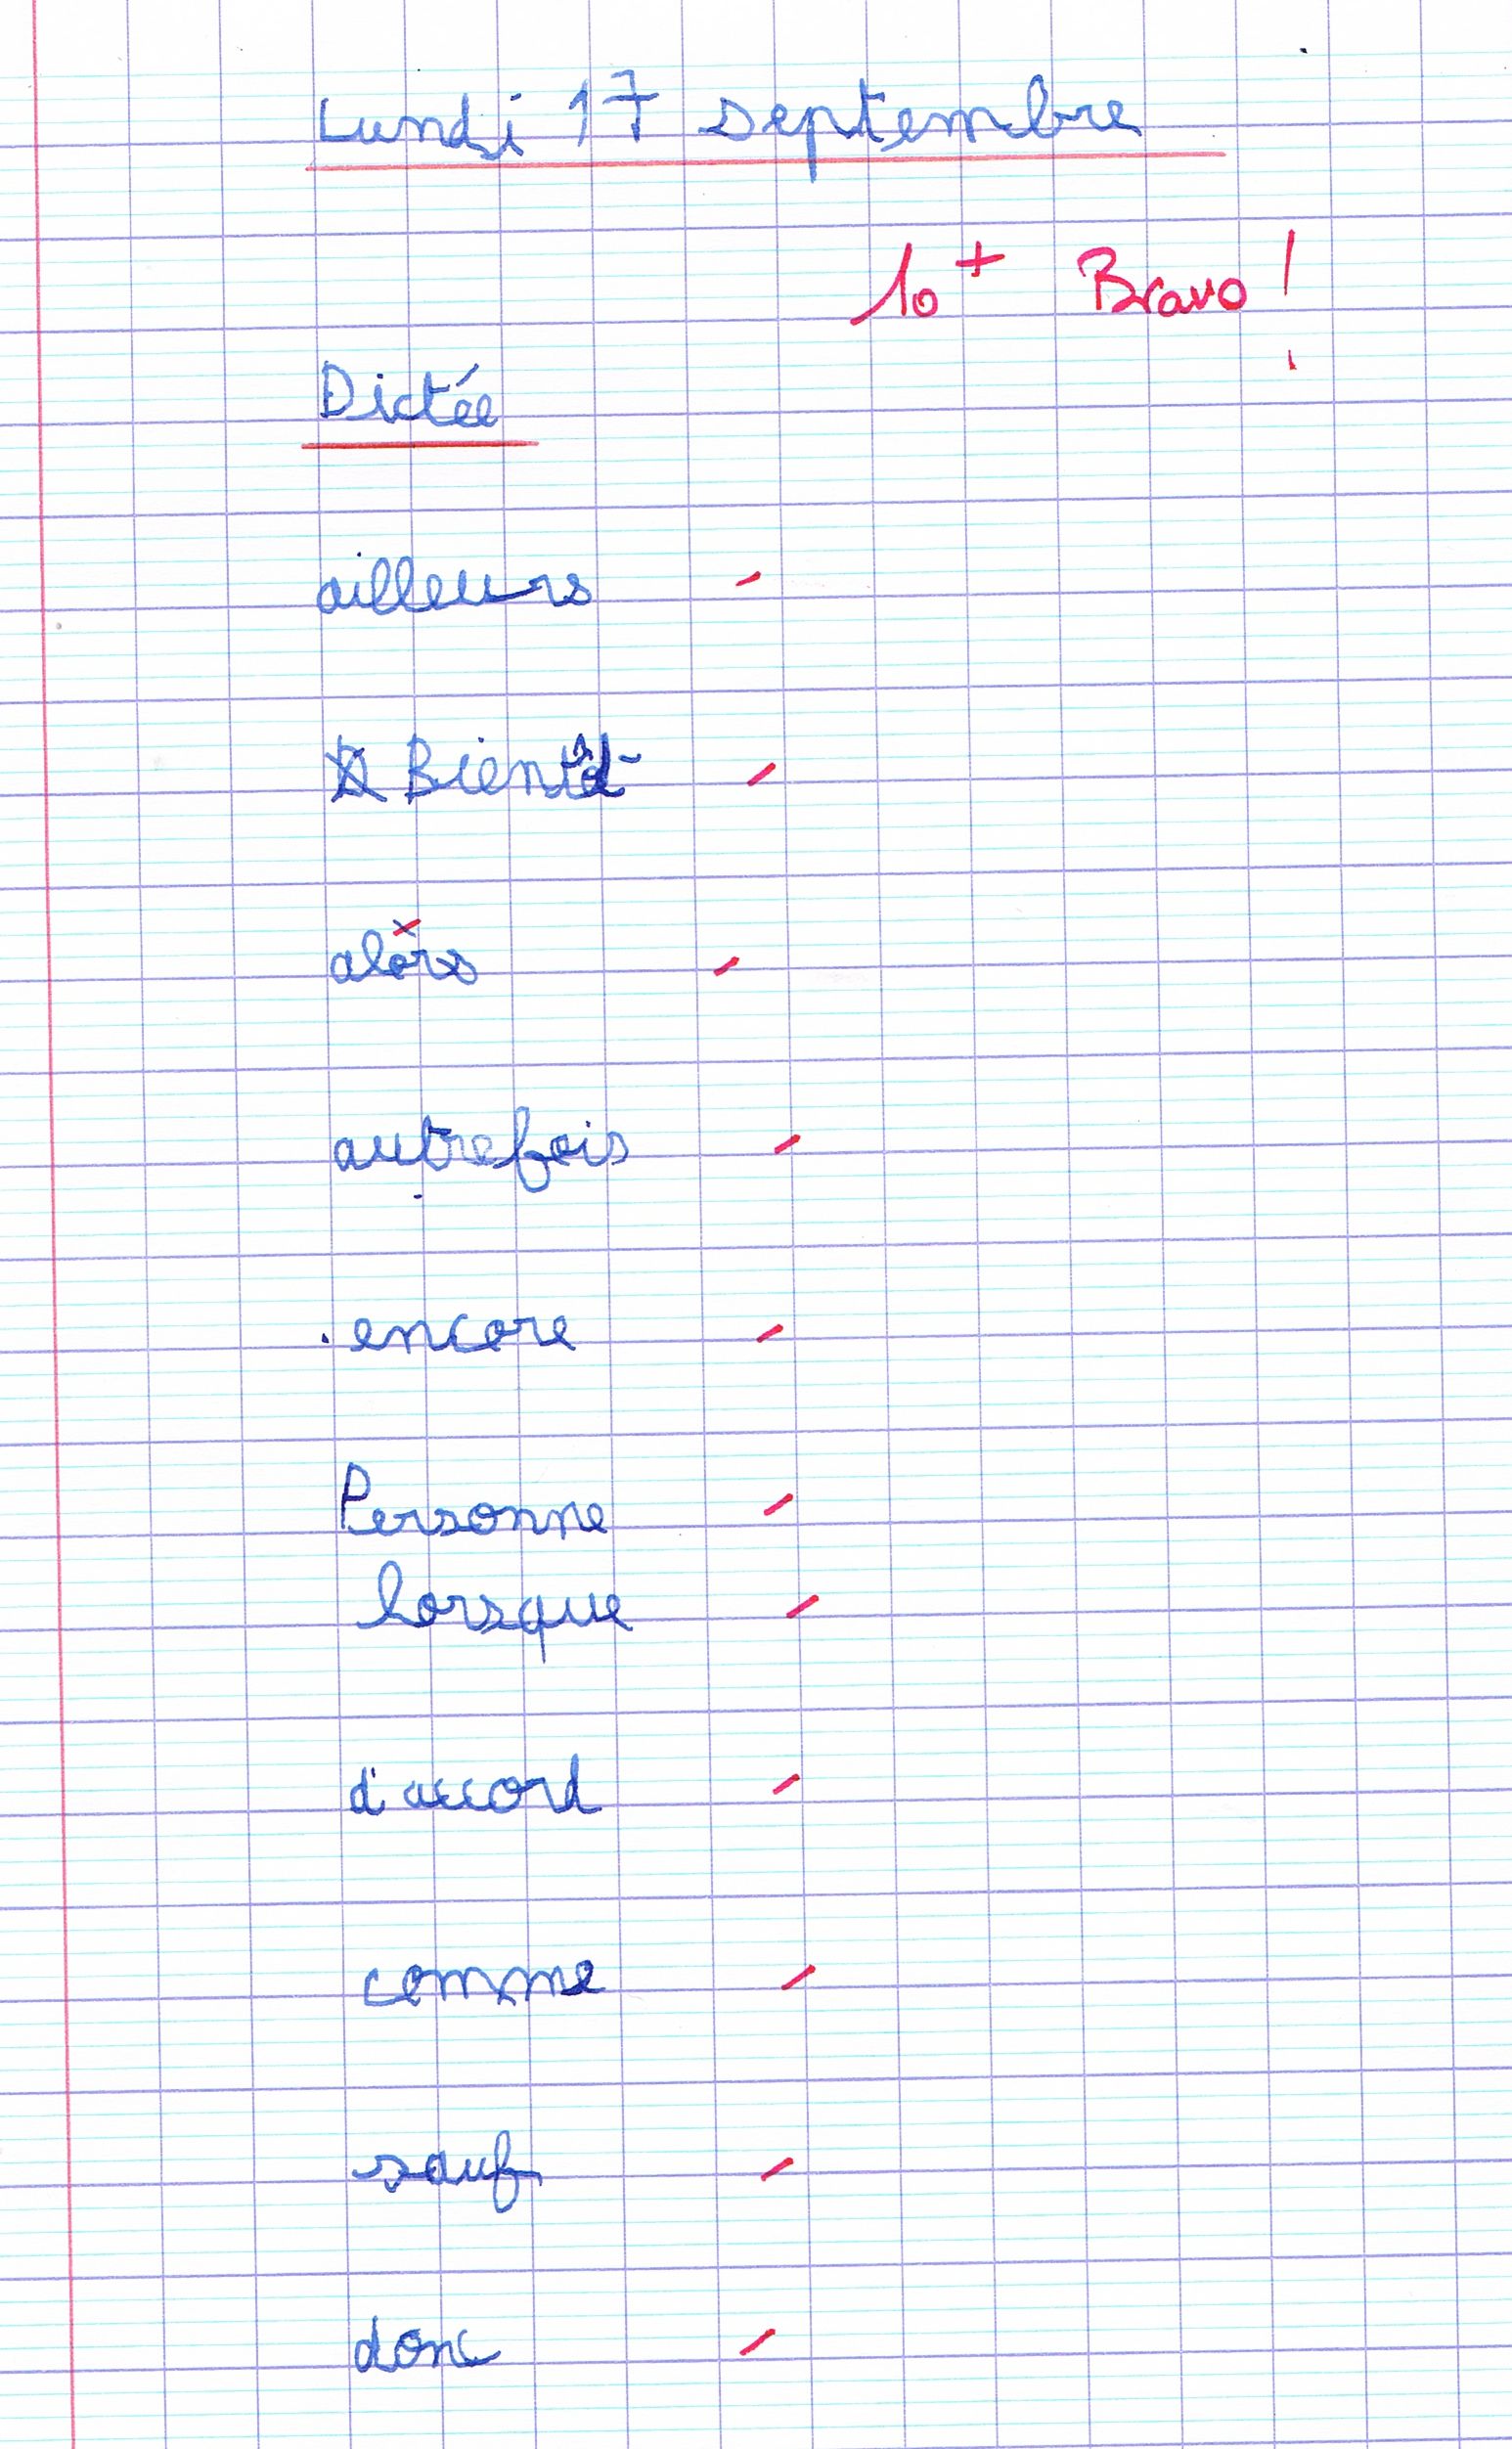 Lundi 17 septembre
10+ Bravo !
Dictée
ailleurs
Bientôt
alors
autrefois
encore
Personne
lorsque
d'accord
comme
sauf
donc